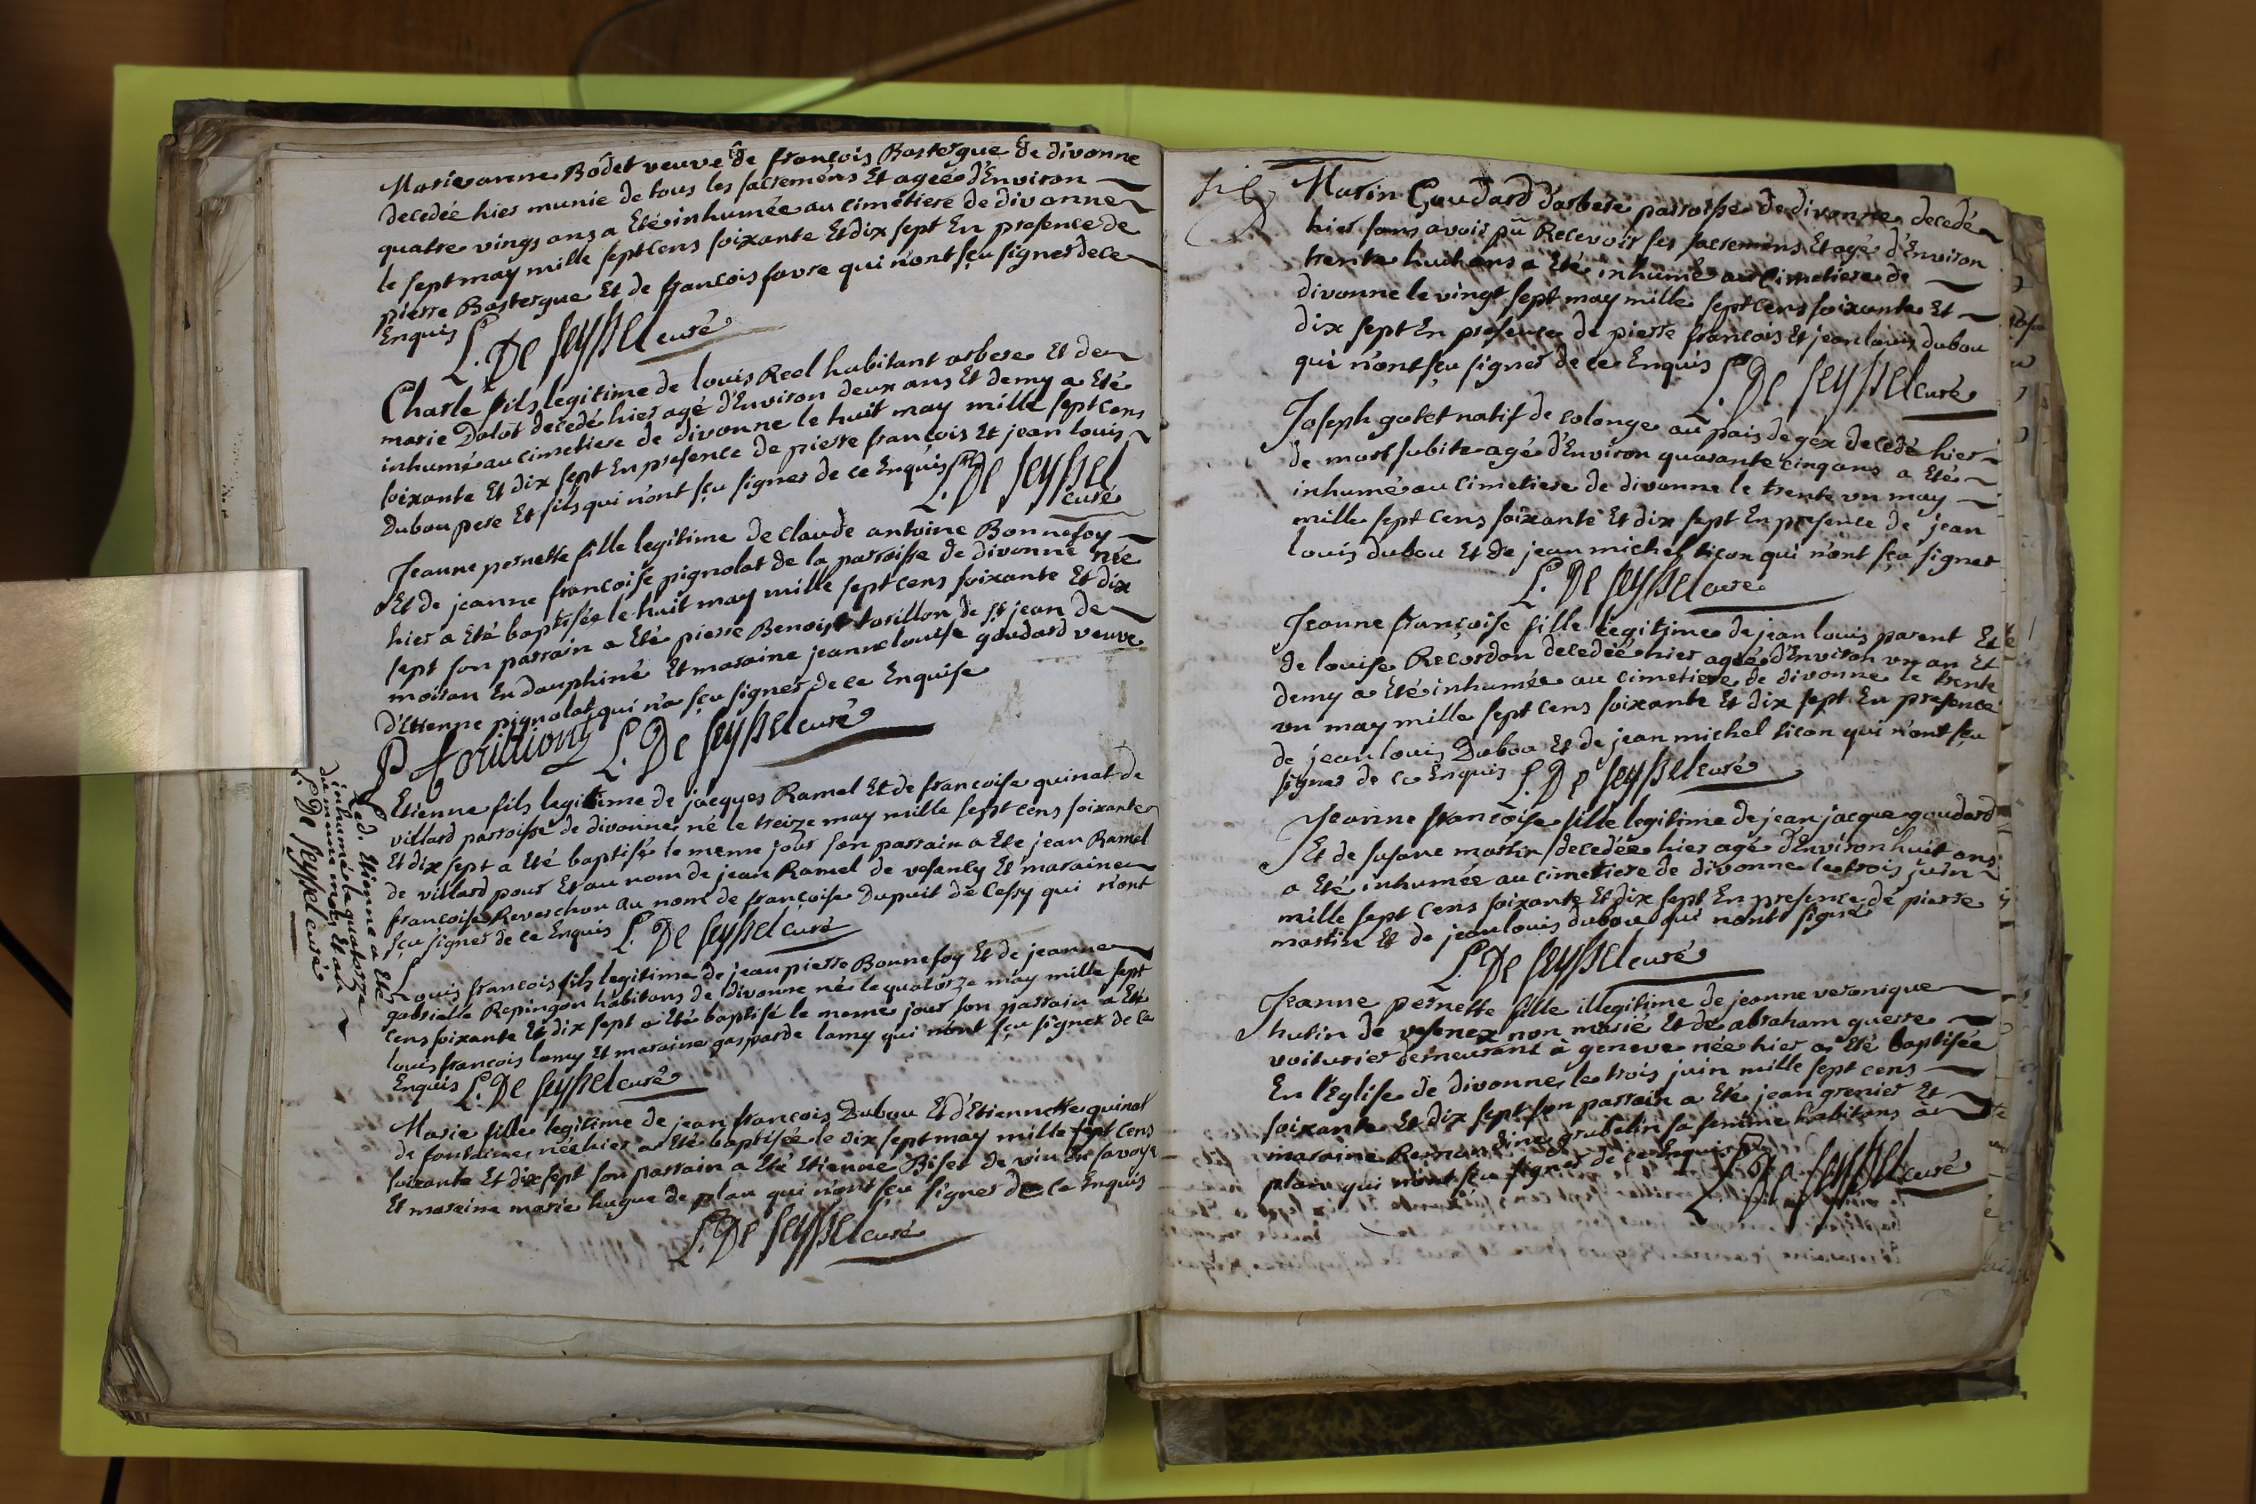 Marie anne Bodet veuve de françois Bastergue de divonne
decedée hier munie de tous les sacremens Et agée d'Environ
quatre vings ans a Eté inhumée au cimetiere de divonne
le sept may mille sept cens soixante Et dix sept En presence de
pierre Bastergue Et de françois favre qui n'ont sçu signer de ce
Enquis L. De Seyssel curé
Charle fils legitime de louis Reel habitant arbere Et de
marie Dalot decedé hier agé d'Environ deux ans Et demy a Eté
inhumé au cimetiere de divonne le huit may mille sept cens
soixante Et dix sept En presence de pierre françois Et jean louis
Dubou pere Et fils qui n'ont sçu signer de ce Enquis L. De Seyssel
curé
Jeanne pernette fille legitime de claude antoine Bonnefoy
Et de jeanne françoise pignolat de la parroisse de divonne née
hier a Eté baptisée le huit may mille sept cens soixante Et dix
sept son parrain a Eté pierre Benoist torillon de st jean de
moiran En dauphiné Et maraine jeanne louise goudard veuve
d'Etienne pignolat qui n'a sçu signer de ce Enquise
P torilliont L. De Seyssel curé
Etienne fils legitime de jacques Ramel Et de françoise quinat de
villard parroisse de divonne né le treize may mille sept cens soixante
Et dix sept a Eté baptisé le meme jour son parrain a Eté jean Ramel
de villard pour Et au nom de jean Ramel de vesancy Et maraine
françoise Reverchon au nom de françoise Dupuit de Cessy qui n'ont
sçu signer de ce Enquis L. De Seyssel curé
Led. Etienne a Eté
inhumé le quatorze
du meme mois Et an
L. De Seyssel curé
Louis françois fils legitime de jean pierre Bonnefoy Et de jeanne
gabrielle Repingon habitans de divonne né le quatorze may mille sept
cens soixante Et dix sept a Eté baptisé le meme jour son parrain a Eté
louis françois lamy Et maraine gasparde lamy qui n'ont sçu signer de ce
Enquis L. De Seyssel curé
Marie fille legitime de jean françois Dubou Et d'Etiennette quinat
de fontaine née hier a Eté baptisée le dix sept may mille sept cens
soixante Et dix sept son parrain a Eté Etienne Biset de viu En savoye
Et maraine marie hugue de plan qui n'ont sçu signer de ce Enquis
L. De Seyssel curé
Marin Goudard d'arbere parroisse de divonne decedé
hier sans avoir pû Recevoir ses sacremens Et agé d'Environ
trente huit ans a Eté inhumé au cimetiere de
divonne le vingt sept may mille sept cens soixante Et
dix sept En presence de pierre françois Et jean louis dubou
qui n'ont sçu signer de ce Enquis L. De Seyssel curé
Joseph gotet natif de colonge au païs de gex decedé hier
de mort subite agé d'Environ quarante cinq ans a Eté
inhumé au cimetiere de divonne le trente un may
mille sept cens soixante Et dix sept En presence de jean
louis dubou Et de jean michel ticon qui n'ont sçu signer
L. De Seyssel curé
Jeanne françoise fille legitime de jean louis parent Et
de louise Recordon decedée hier agée d'Environ un an Et
demy a Eté inhumée au cimetiere de divonne le trente
un may mille sept cens soixante Et dix sept En presence
de jean louis Dubou Et de jean michel ticon qui n'ont sçu
signer de ce Enquis L. De Seyssel curé
Jeanne françoise fille legitime de jean jacque goudard
Et de susane martin decedée hier agé d'Environ huit ans
a Eté inhumée au cimetiere de divonne le trois juin
mille sept cens soixante Et dix sept En presence de pierre
martin Et de jean louis dubou qui n'ont signé
L. De Seyssel curé
Jeanne pernette fille illegitime de jeanne veronique
hutin de vesenex non marié Et de abraham guerre
voiturier demeurant à geneve née hier a Eté baptisée
En l'Eglise de divonne le trois juin mille sept cens
soixante Et dix sept son parrain a Eté jean grenier Et
maraine grabelin sa femme habitans à
plan qui n'ont sçu signer de ce Enquis L. De Seyssel curé